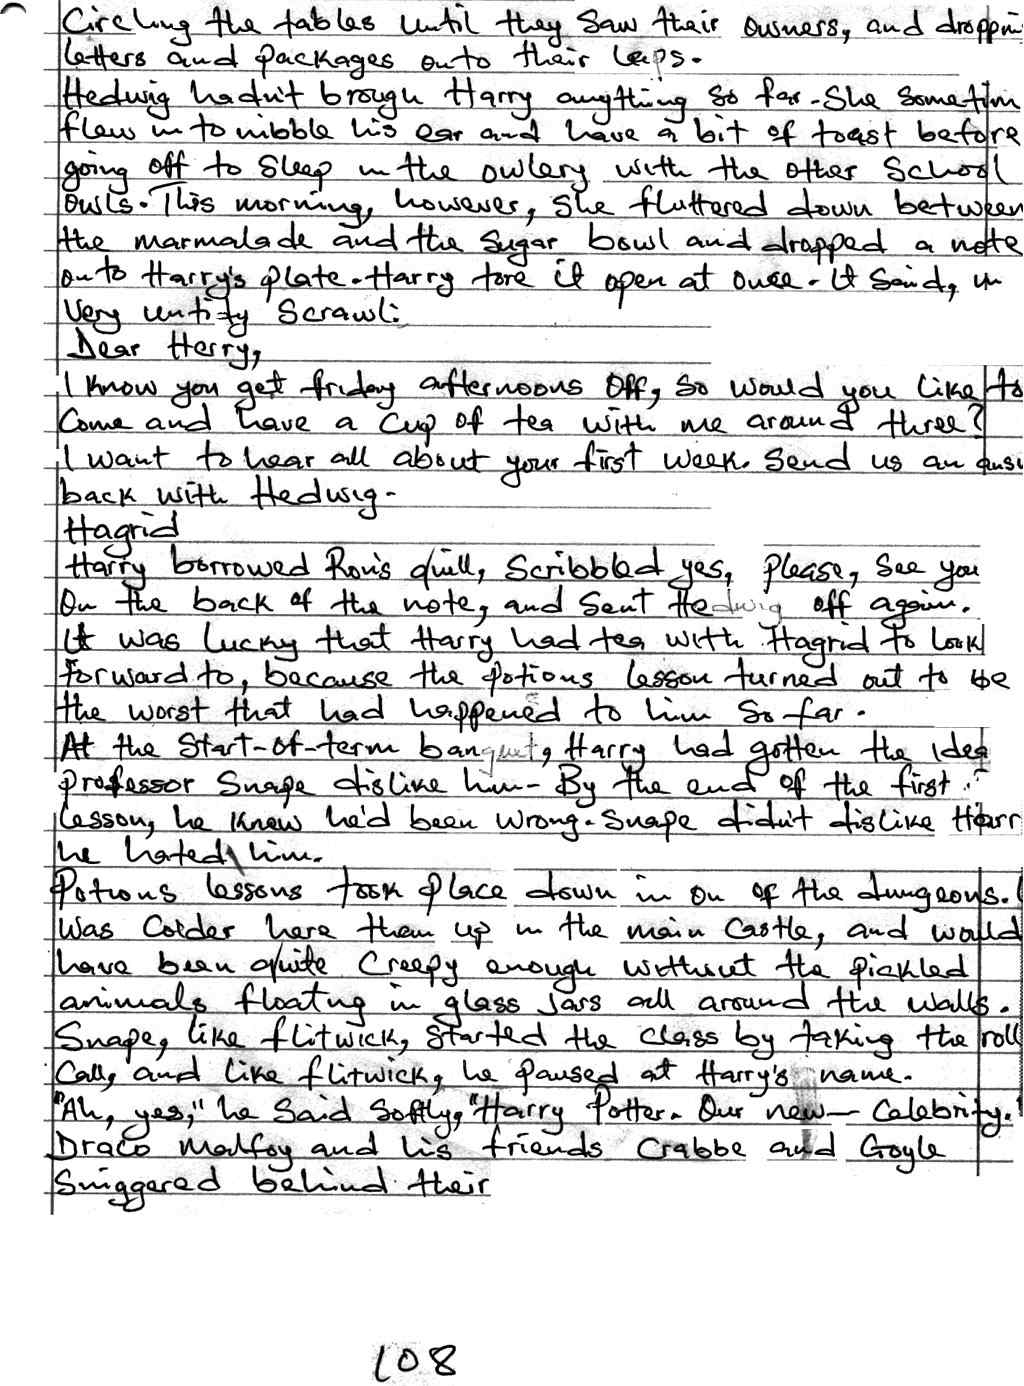 Circling the tables until they saw their owners, and droppin
letters and packages onto their laps.
Hedwig hadn't brough Harry anything so far. She sometim
flew in to nibble his ear and have a bit of toast before
going off to sleep in the owlery with the other School
owls. This morning, however, she fluttered down between
the marmalade and the sugar bowl and dropped a note
onto Harry's plate. Harry tore it open at once. It said, in
Very untidy Scrawl:
Dear Harry,
I know you get friday afternoons off, so would you like to
Come and have a cup of tea with me around three?
I want to hear all about your first week. Send us an answ
back with Hedwig.
Hagrid
Harry borrowed Ron's quill, Scribbled yes, please, see you
On the back of the note, and sent Hedwig off again.
It was lucky that Harry had tea with Hagrid to look
forward to, because the potions lesson turned out to be
the worst that had happened to him so far.
At the Start-of-term banquet, Harry had gotten the idea
professor Snape dislike him. By the end of the first
lesson, he knew he'd been wrong. Snape didn't dislike Harr
he hated him.
Potions lessons took place down in on of the dungeons. I
Was Colder here them up in the main Castle, and would
have been quite Creepy enough without the pickled
animals floatng in glass Jars all around the walls.
Snape, like flitwick, started the class by taking the roll
Call, and like flitwick, he paused at Harry's name.
"Ah, yes," he said softly, "Harry Potter. Our new— Celebrity."
Draco Malfoy and his friends Crabbe and Goyle
Sniggered behind their
108